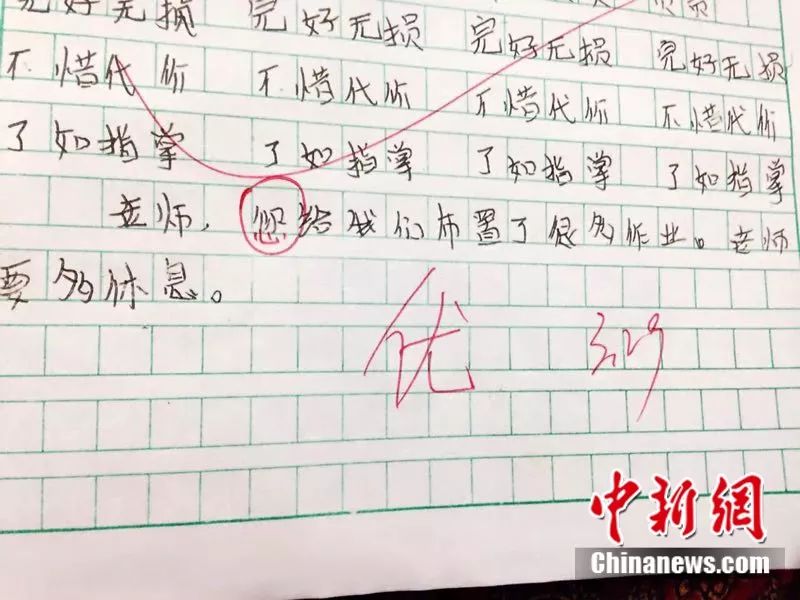 完好无损 完好无损 完好无损 完好无损
不惜代价 不惜代价 不惜代价 不惜代价
了如指掌 了如指掌 了如指掌 了如指掌
老师，您给我们布置了很多作业。老师
要多休息。
优 3.29
中新網
Chinanews.com